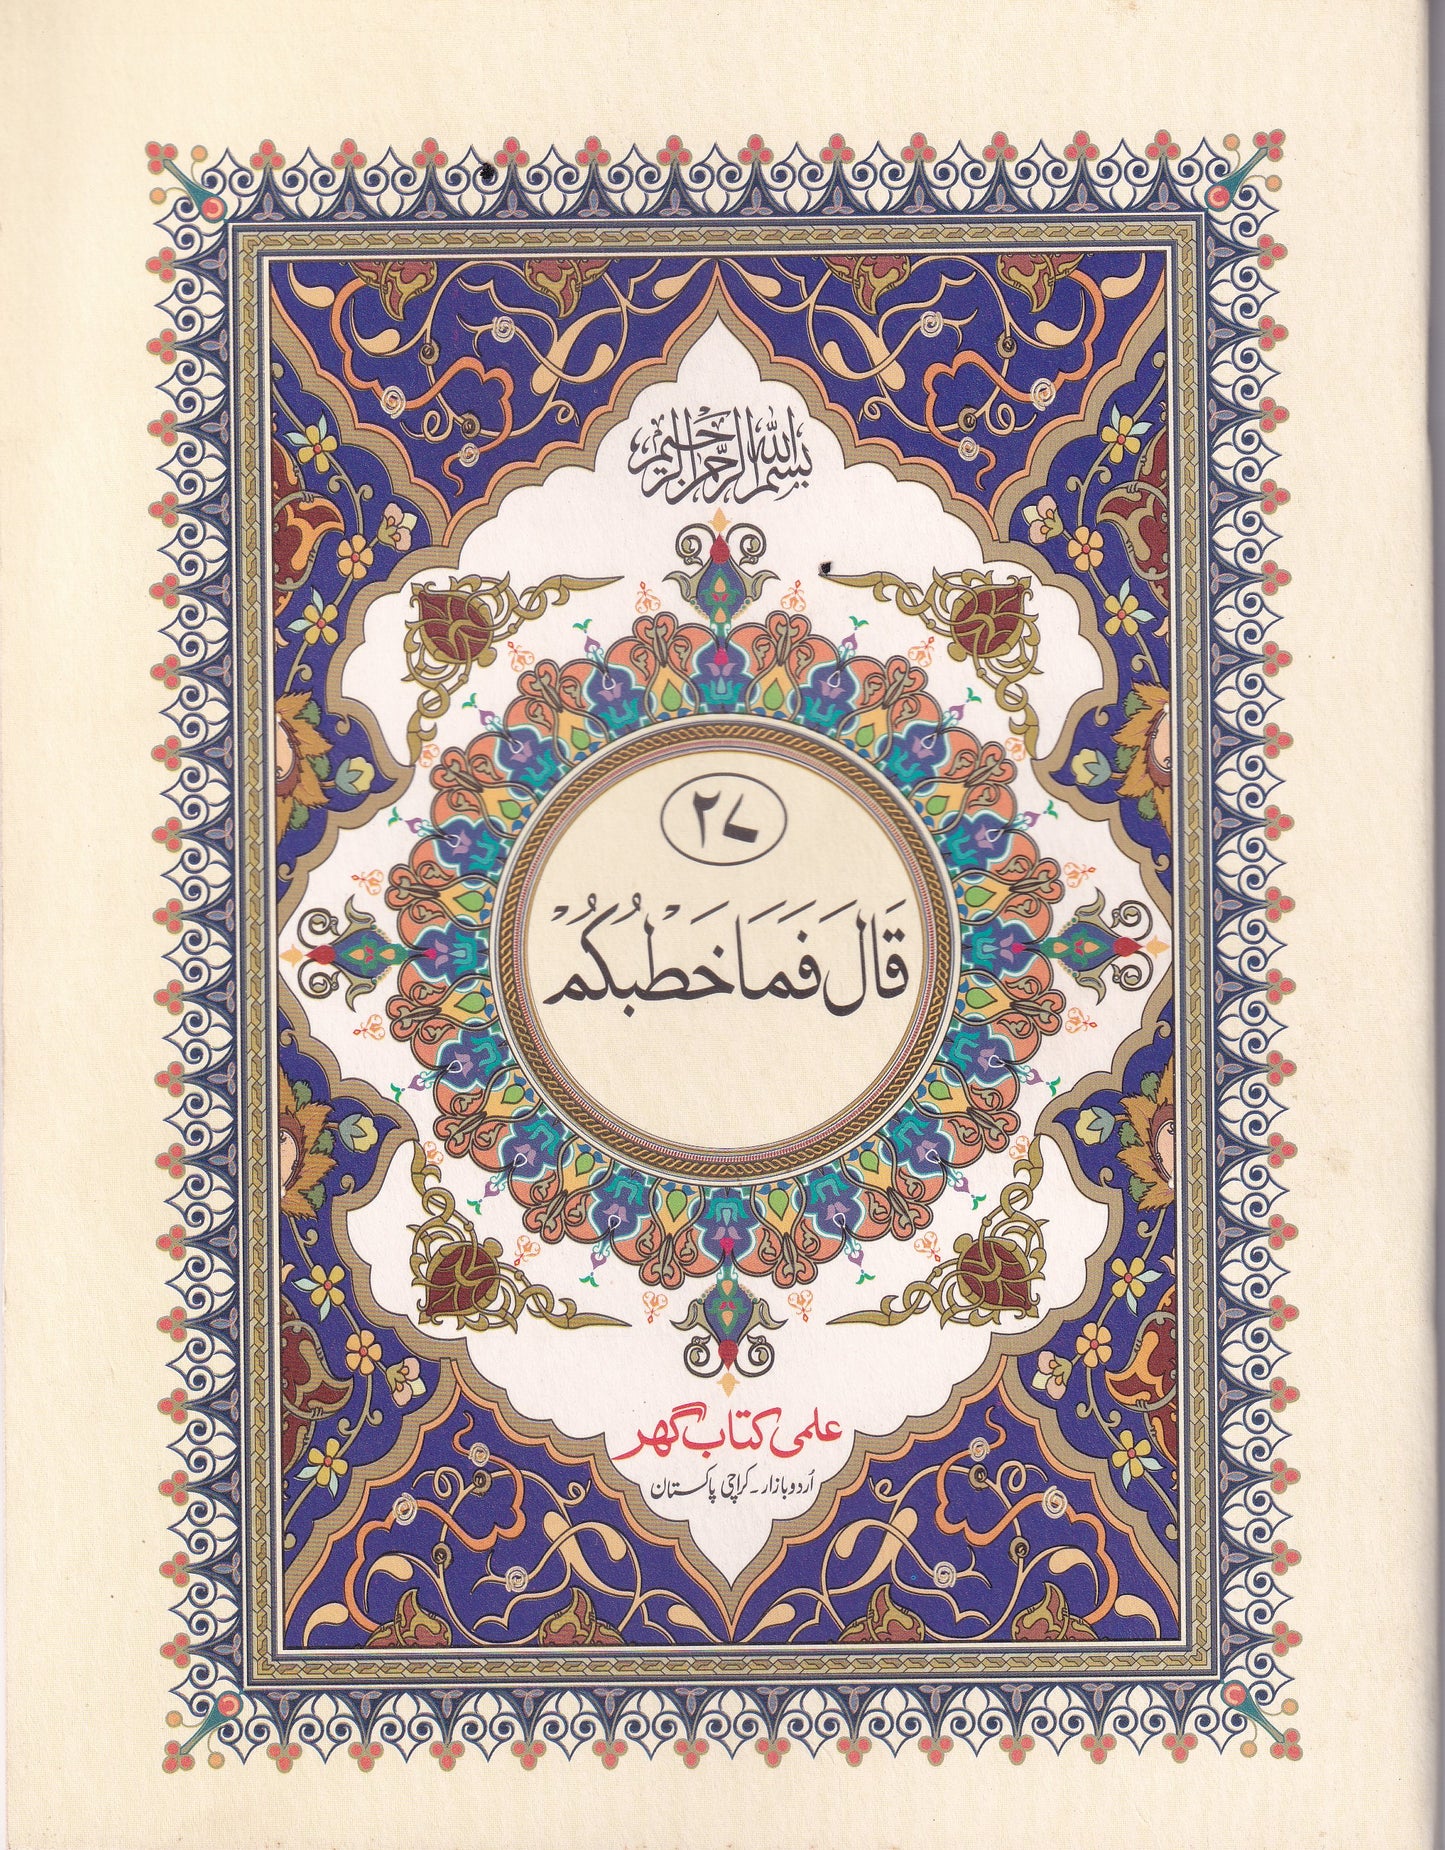 بسم الله الرحمن الرحيم
۲۷
قَالَ فَمَا خَطْبُكُمْ
علمی کتاب گھر
اُردو بازار ۔ کراچی پاکستان